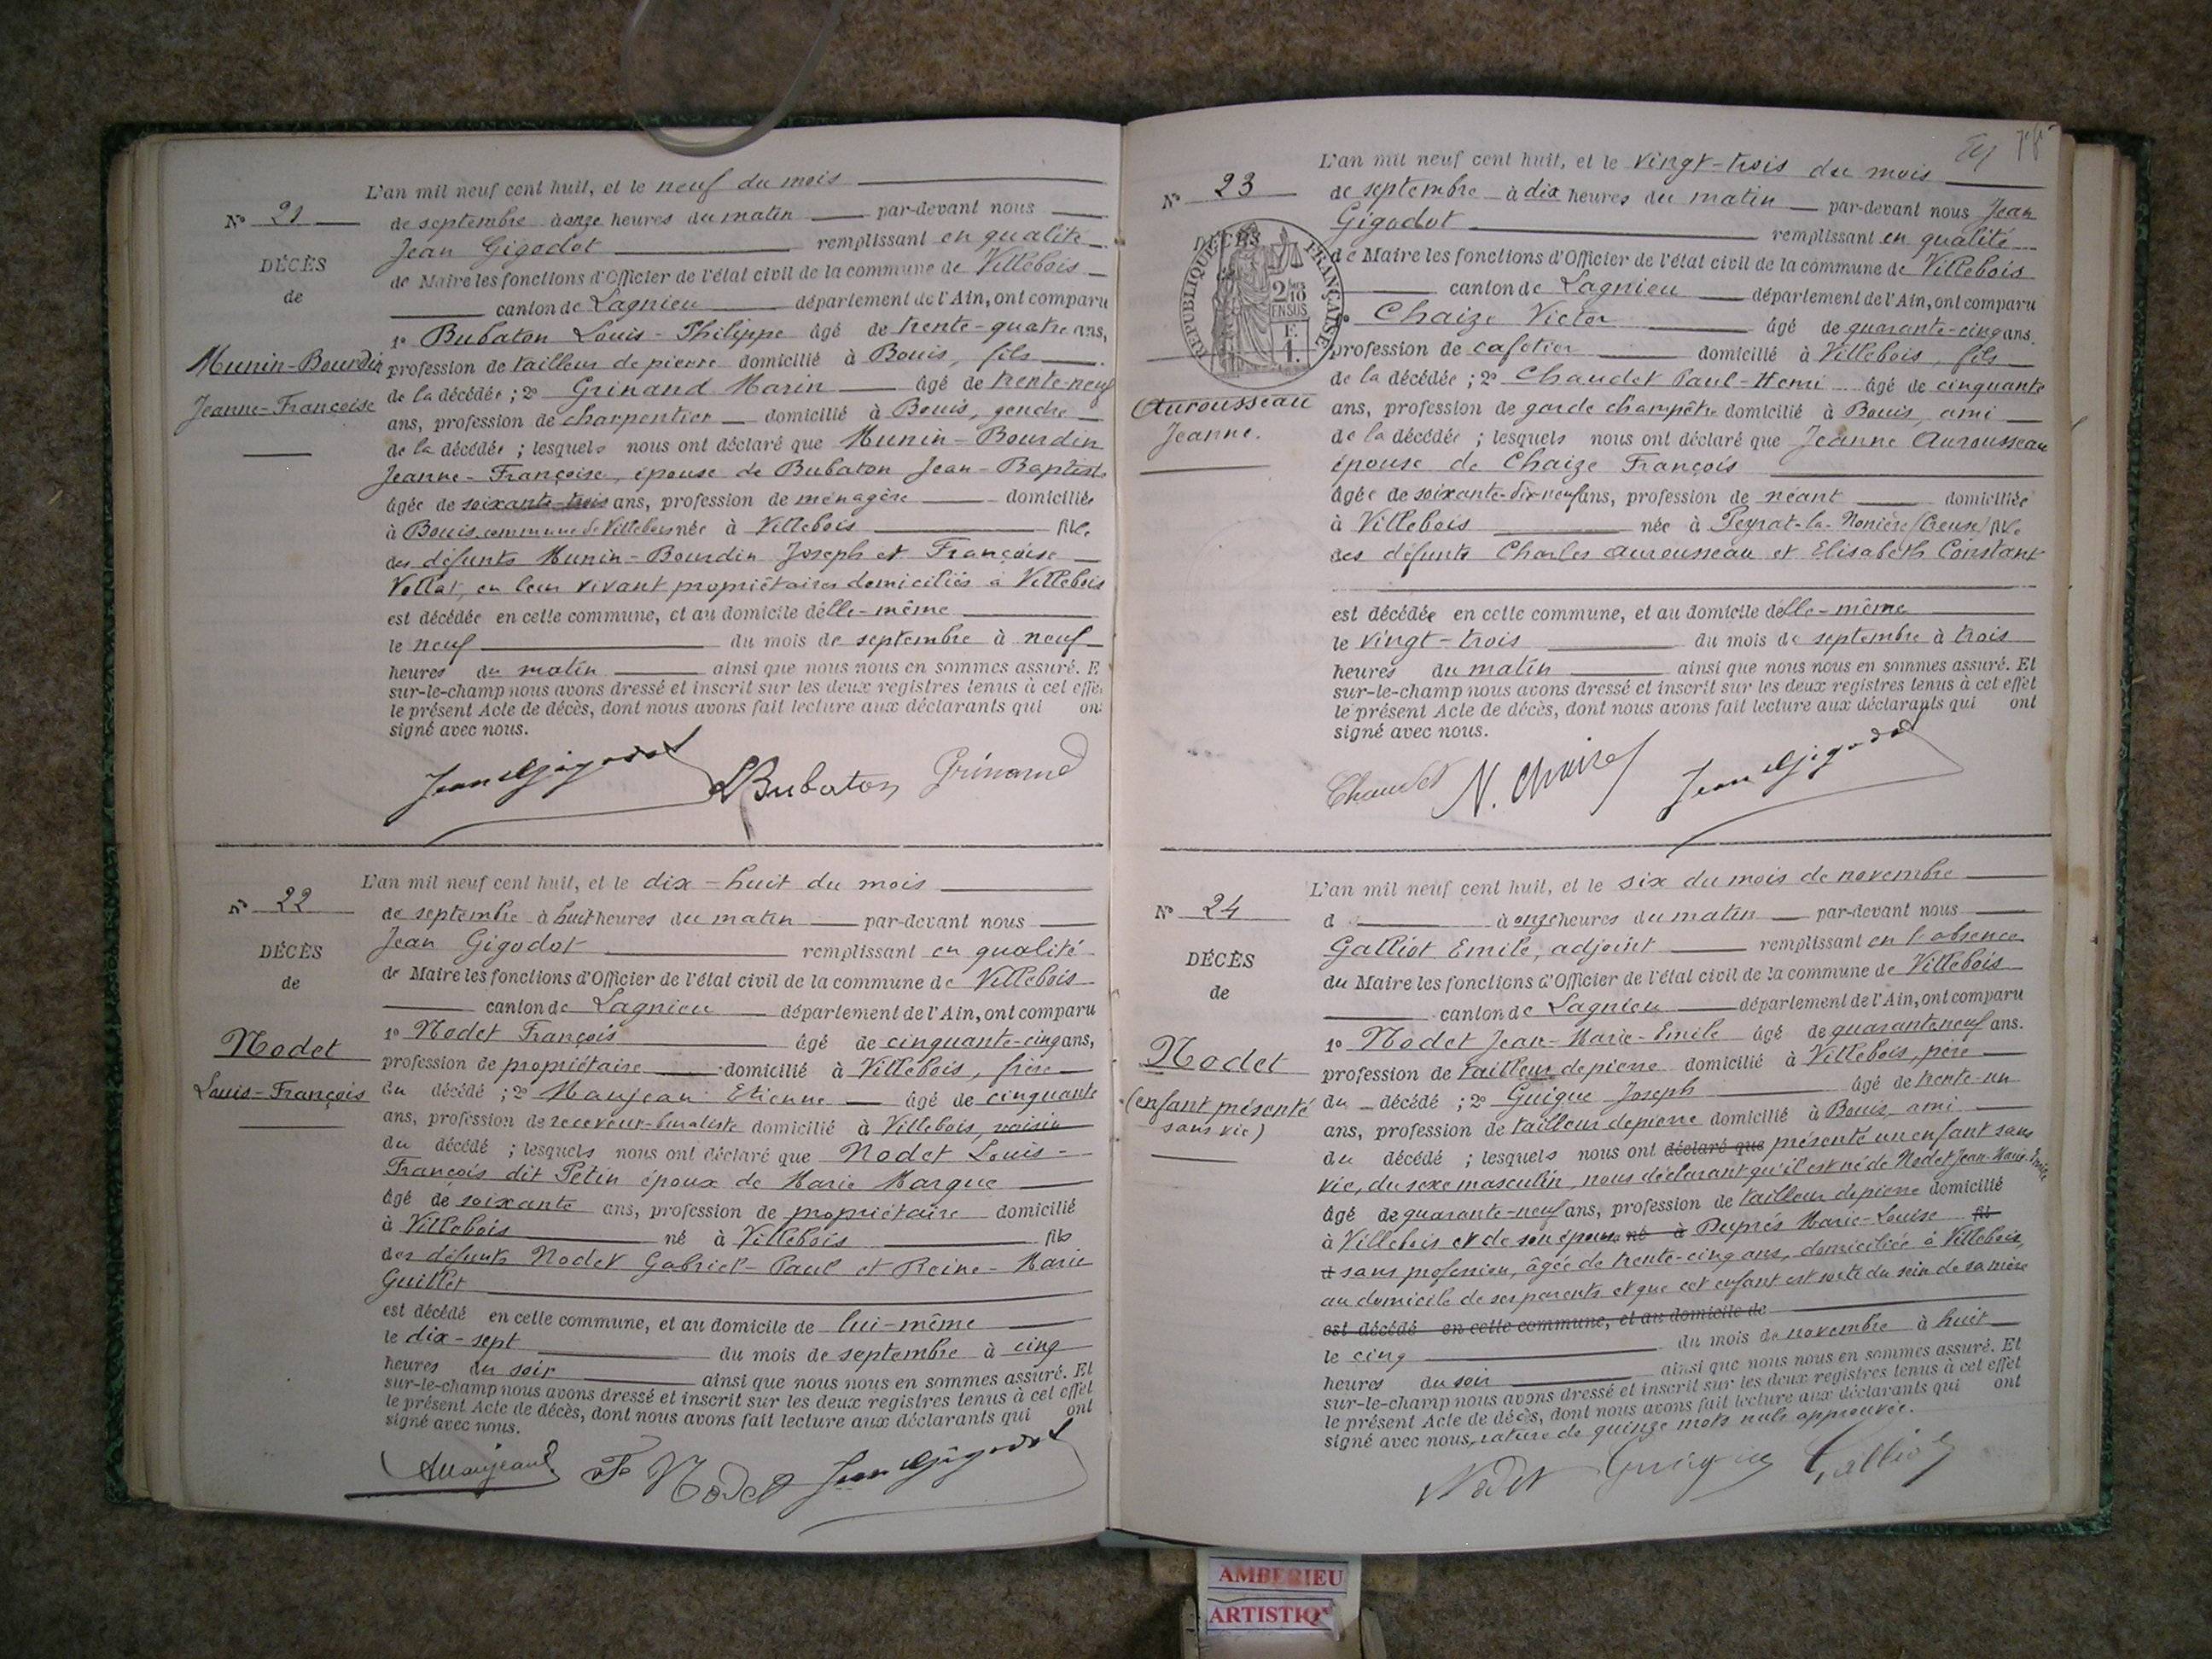 L'an mil neuf cent huit, et le neuf du mois
N° 21
de septembre à onze heures du matin par-devant nous
Jean Gigodot remplissant en qualité
DÉCÈS
de
de Maire les fonctions d'Officier de l'état civil de la commune de Villebois
canton de Lagnieu département de l'Ain, ont comparu
1° Bubaton Louis-Philippe âgé de trente-quatre ans,
Munin-Bourdin
Jeanne-Françoise
profession de tailleur de pierre domicilié à Bouis, fils
de la décédée ; 2° Grinand Marin âgé de trente-neuf
ans, profession de charpentier domicilié à Bouis, gendre
de la décédée ; lesquels nous ont déclaré que Munin-Bourdin
Jeanne-Françoise, épouse de Bubaton Jean-Baptiste
âgée de soixante-trois ans, profession de ménagère domiciliée
à Bouis, commune de Villebois née à Villebois fille
des défunts Munin-Bourdin Joseph et Françoise
Vellat, en leur vivant propriétaires domiciliés à Villebois
est décédée en cette commune, et au domicile d'elle-même
le neuf du mois de septembre à neuf
heures du matin ainsi que nous nous en sommes assuré. E
sur-le-champ nous avons dressé et inscrit sur les deux registres tenus à cet effe
le présent Acte de décès, dont nous avons fait lecture aux déclarants qui on
signé avec nous.
Jean Gigodot LBubaton Grinand
L'an mil neuf cent huit, et le dix-huit du mois
N° 22
de septembre à huit heures du matin par-devant nous
Jean Gigodot remplissant en qualité
DÉCÈS
de
de Maire les fonctions d'Officier de l'état civil de la commune de Villebois
canton de Lagnieu département de l'Ain, ont comparu
Nodet
Louis-François
1° Nodet François âgé de cinquante-cinq ans,
profession de propriétaire domicilié à Villebois, frère
du décédé ; 2° Maujean Etienne âgé de cinquante
ans, profession de receveur-buraliste domicilié à Villebois, voisin
du décédé ; lesquels nous ont déclaré que Nodet Louis-
François dit Petin époux de Marie Margue
âgé de soixante ans, profession de propriétaire domicilié
à Villebois né à Villebois fils
des défunts Nodet Gabriel-Paul et Reine-Marie
Guillet
est décédé en cette commune, et au domicile de lui-même
le dix-sept du mois de septembre à cinq
heures du soir ainsi que nous nous en sommes assuré. Et
sur-le-champ nous avons dressé et inscrit sur les deux registres tenus à cet effet
le présent Acte de décès, dont nous avons fait lecture aux déclarants qui ont
signé avec nous.
Maujean E Fs Nodet Jean Gigodot
L'an mil neuf cent huit, et le vingt-trois du mois
N° 23
de septembre à dix heures du matin par-devant nous Jean
Gigodot remplissant en qualité
DÉCÈS
RÉPUBLIQUE FRANÇAISE
2/10
EN SUS
F.
1.
de Maire les fonctions d'Officier de l'état civil de la commune de Villebois
canton de Lagnieu département de l'Ain, ont comparu
Chaize Victor âgé de quarante-cinq ans.
profession de cafetier domicilié à Villebois, fils
Aurousseau
Jeanne.
de la décédée ; 2° Chaudet Paul-Henri âgé de cinquante
ans, profession de garde champêtre domicilié à Bouis, ami
de la décédée ; lesquels nous ont déclaré que Jeanne Aurousseau
épouse de Chaize François
âgée de soixante-dix-neuf ans, profession de néant domiciliée
à Villebois née à Peyrat-la-Nonière (Creuse) fille
des défunts Charles Aurousseau et Elisabeth Constant
est décédée en cette commune, et au domicile d'elle-même
le vingt-trois du mois de septembre à trois
heures du matin ainsi que nous nous en sommes assuré. Et
sur-le-champ nous avons dressé et inscrit sur les deux registres tenus à cet effet
le présent Acte de décès, dont nous avons fait lecture aux déclarants qui ont
signé avec nous.
Chaudet V. Chaize Jean Gigodot
L'an mil neuf cent huit, et le six du mois de novembre
N° 24
d à onze heures du matin par-devant nous
Galliot Emile, adjoint remplissant en l'absence
DÉCÈS
de
du Maire les fonctions d'Officier de l'état civil de la commune de Villebois
canton de Lagnieu département de l'Ain, ont comparu
Nodet
(enfant présenté
sans vie)
1° Nodet Jean-Marie-Emile âgé de quarante neuf ans.
profession de tailleur de pierre domicilié à Villebois, père
du décédé ; 2° Guigue Joseph âgé de trente-un
ans, profession de tailleur de pierre domicilié à Bouis, ami
du décédé ; lesquels nous ont déclaré que présenté un enfant sans
vie, du sexe masculin, nous déclarant qu'il est né de Nodet Jean-Marie-Emile
âgé de quarante-neuf ans, profession de tailleur de pierre domicilié
à Villebois et de son épouse né à Deprés Marie-Louise fil
d sans profession, âgée de trente-cinq ans, domiciliée à Villebois,
au domicile de ses parents et que cet enfant est sorti du sein de sa mère
est décédé en cette commune, et au domicile de
le cinq du mois de novembre à huit
heures du soir ainsi que nous nous en sommes assuré. Et
sur-le-champ nous avons dressé et inscrit sur les deux registres tenus à cet effet
le présent Acte de décès, dont nous avons fait lecture aux déclarants qui ont
signé avec nous, rature de quinze mots nuls approuvée.
Nodet Guigue Galliot
AMBERIEU
ARTISTIQ